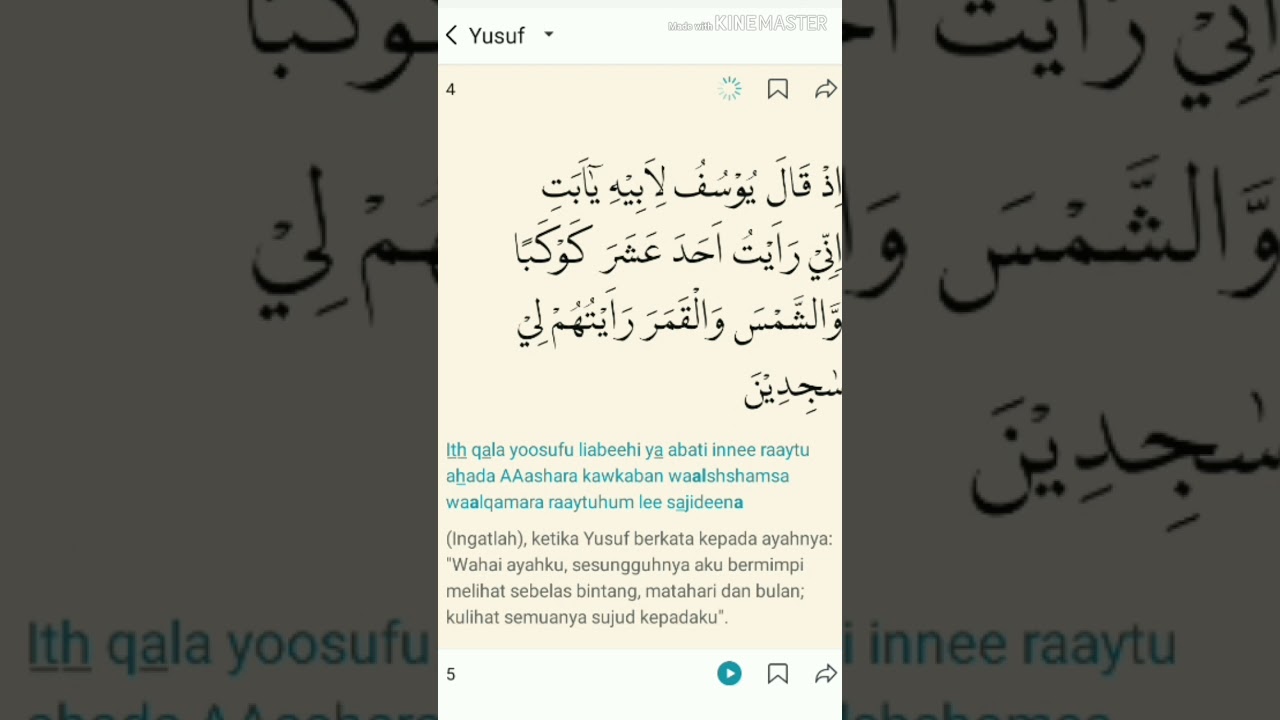 Yusuf
Made with KINEMASTER
4
اِذْ قَالَ يُوْسُفُ لِاَبِيْهِ يٰٓاَبَتِ
اِنِّيْ رَاَيْتُ اَحَدَ عَشَرَ كَوْكَبًا
وَّالشَّمْسَ وَالْقَمَرَ رَاَيْتُهُمْ لِيْ
سٰجِدِيْنَ
Ith qala yoosufu liabeehi ya abati innee raaytu
ahada AAashara kawkaban waalshshamsa
waalqamara raaytuhum lee sajideena
(Ingatlah), ketika Yusuf berkata kepada ayahnya:
"Wahai ayahku, sesungguhnya aku bermimpi
melihat sebelas bintang, matahari dan bulan;
kulihat semuanya sujud kepadaku".
5